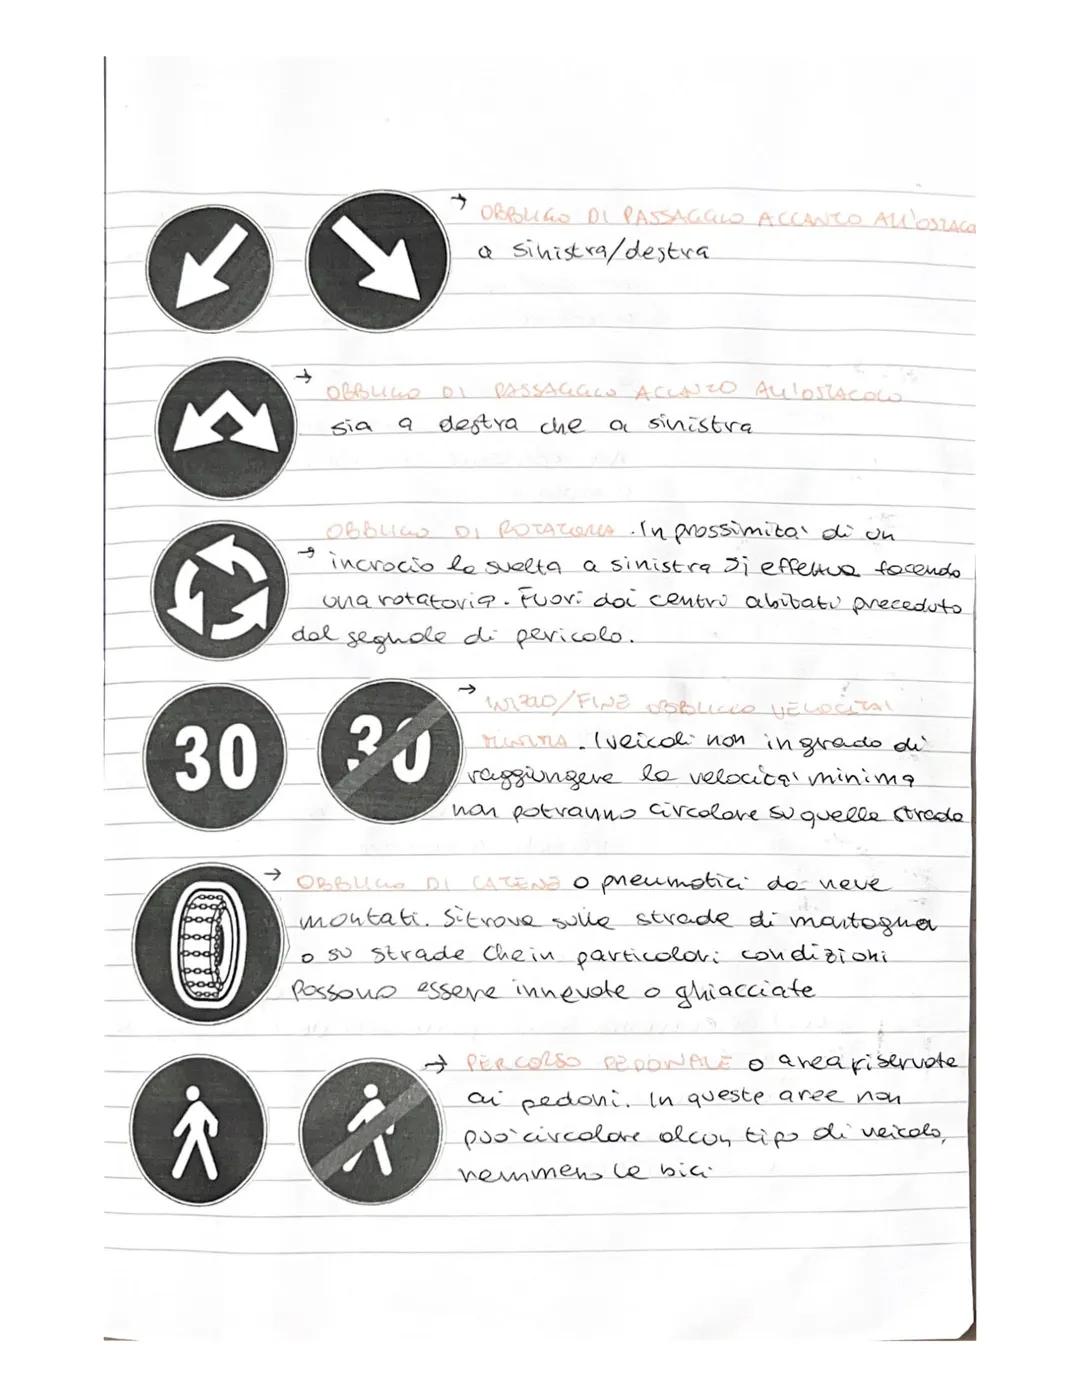 → OBBLIGO DI PASSAGGIO ACCANTO ALL'OSTACO
a sinistra/destra
→ OBBLIGO DI PASSAGGIO ACCANTO ALL'OSTACOLO
sia a destra che a sinistra
OBBLIGO DI ROTATORIA. In prossimita' di un
→ incrocio la svolta a sinistra si effettua facendo
una rotatoria. Fuori dai centri abitati preceduto
dal segnale di pericolo.
30 30 → INIZIO/FINE OBBLIGO VELOCITA'
MINIMA. I veicoli non in grado di
raggiungere la velocita' minima
non potranno circolare su quella strada
→ OBBLIGO DI CATENE o pneumatici da neve
montati. Si trova sulle strade di montagna
o su strade che in particolari condizioni
possono essere innevate o ghiacciate
→ PERCORSO PEDONALE o area riservata
ai pedoni. In queste aree non
puo' circolare alcun tipo di veicolo,
nemmeno le bici